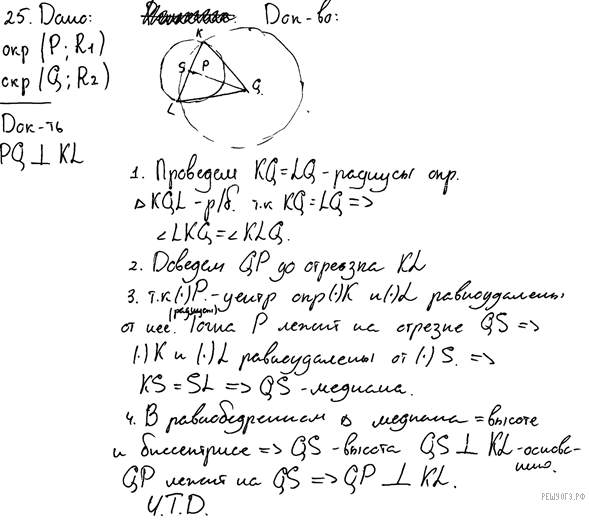 25. Дано:
Док-во:
окр (P; R1)
окр (Q; R2)
Док-ть
PQ ⊥ KL
K
S
P
Q
L
1. Проведем KQ=LQ - радиусы окр.
△ KQL - р/б. т.к KQ=LQ =>
∠LKQ=∠KLQ.
2. Доведем QP до отрезка KL
3. т.к (·)P. - центр окр (·)K и (·)L равноудалены
(радиусы)
от нее. Точка P лежит на отрезке QS =>
(·)K и (·)L равноудалены от (·)S. =>
KS = SL => QS - медиана.
4. В равнобедренном △ медиана = высоте
и биссектрисе => QS - высота QS ⊥ KL - основа-
нию.
QP лежит на QS => QP ⊥ KL.
Ч.Т.D.
РЕШУОГЭ.РФ